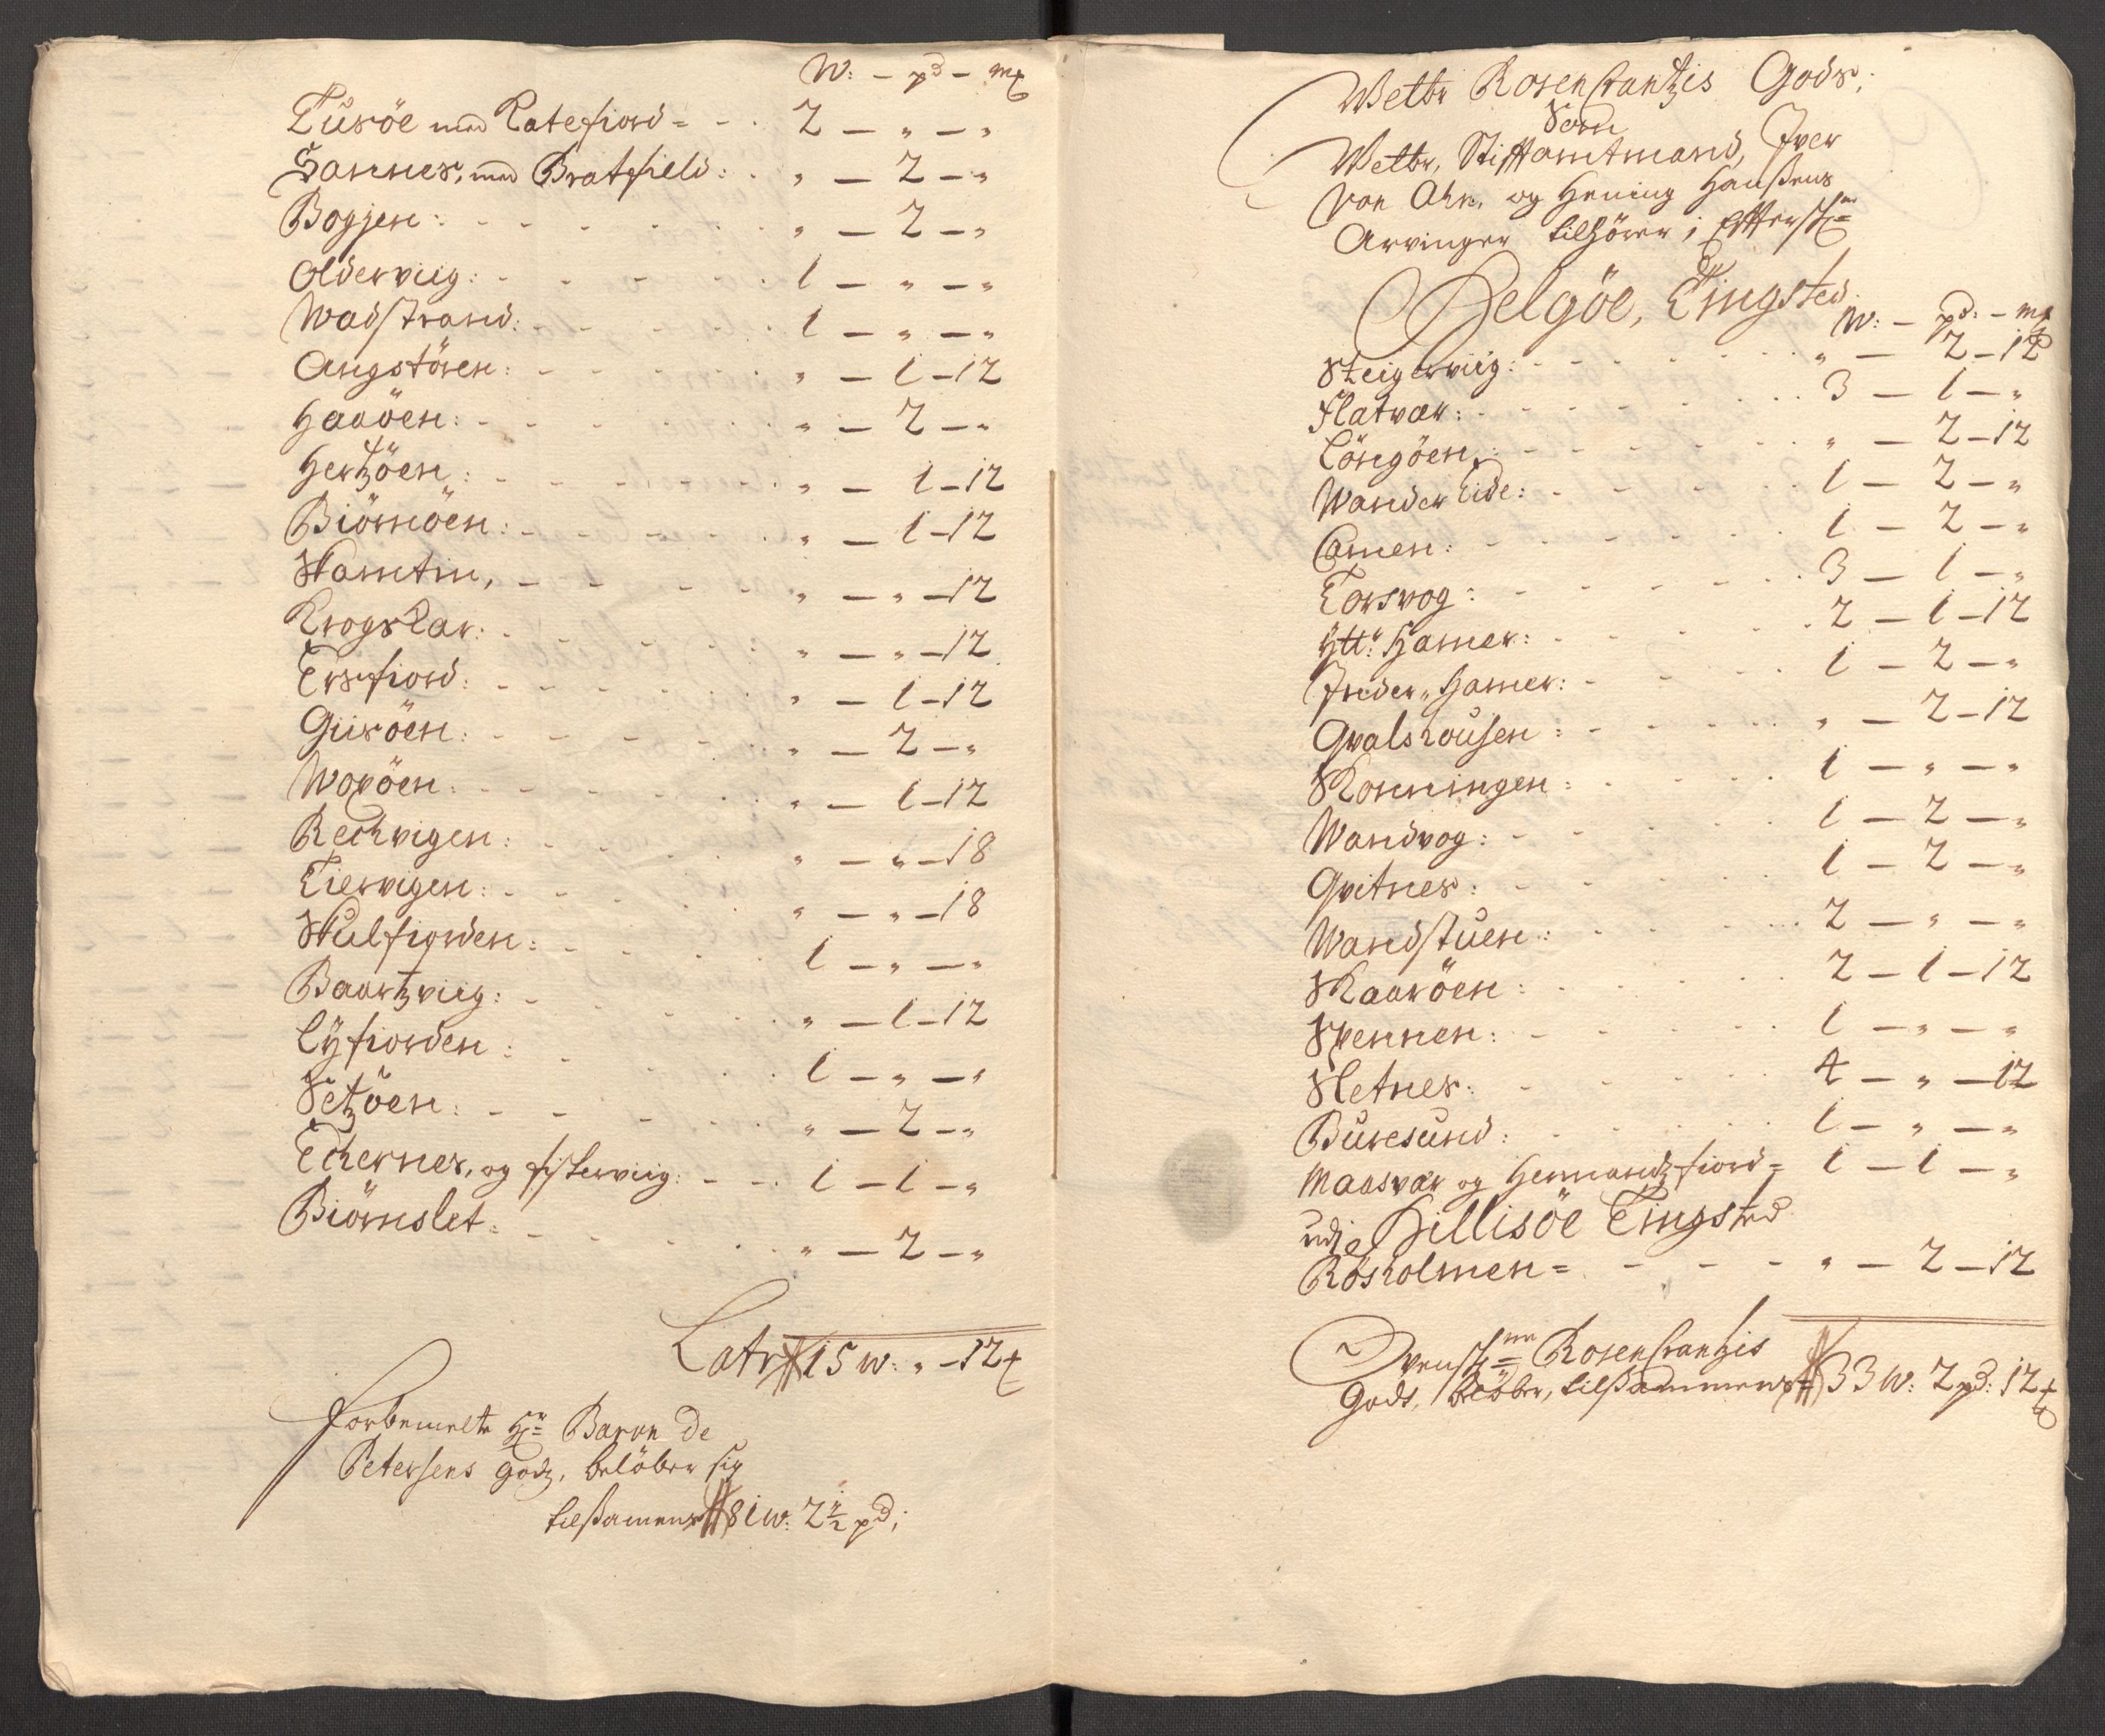 W: — pd — mk
Tusöe med Katefiord = - . 2 — " — "
Sannes, med Bratfield: . " — 2 — "
Bogjen: - - - - " — 2 — "
Oldervüg: - - - - 1 — " — "
Wadstrand: - - - 1 — " — "
Angstören: - - - - " — 1 — 12
Haaöen: - - - - " — 2 — "
Hertzöen: - - - - " — 1 — 12
Biörnöen: - - - - " — 1 — 12
Skamtin, - - - - " — " — 12
Krogskar: - - - - " — " — 12
Ersfiord: - - - - " — 1 — 12
Giisöen: - - - - " — 2 — "
Woxöen: - - - - " — 1 — 12
Rechvigen: - - - " — " — 18
Tiervigen: - - - " — " — 18
Skulfiorden: - - - 1 — " — "
Baartzviig: - - - " — 1 — 12
Lyfiorden: - - - 1 — " — "
Setzöen: - - - - " — 2 — "
Echernes, og fiskerviig: - - 1 — 1 — "
Biörnslet - - - - " — 2 — "
Latr 15 W: " — 12
forbemelte Hr= Baron de
Petersens godz, belöber sig
tilsamens 81 W: 2½ pd;
Welbr Rosencrantzis Gods,
Som
Welbr, Stifftamtmand, Iver
Von Ahn, og Hening Hanssens
Arvinger tilhörer i Effterskr=
Helgöe, Tingsted
W: — pd: — mk
Skeigerviig: - - - - " — 2 — 12
Flatvær: - - - - 3 — 1 — "
Löngöen: - - - - " — 2 — 12
Wander Eide: - - - 1 — 2 — "
Camen: - - - - 1 — 2 — "
Torsvog: - - - - 3 — 1 — "
Ytt: Hamer: - - - 2 — 1 — 12
Inder Hamer: - - - 1 — 2 — "
Qvalshousen: - - - " — 2 — 12
Skonningen: - - - 1 — " — "
Wandvog: - - - - 1 — 2 — "
Qvitnes: - - - - 1 — 2 — "
Wandstuen: - - - 2 — " — "
Skaaröen: - - - 2 — 1 — 12
Spennen: - - - - 1 — " — "
Sletnes: - - - - 4 — " — 12
Buresund: - - - - 1 — " — "
Maasvær og Hermandz fiord = 1 — 1 — "
udi Hillisöe Tingsted
Rösholmen = - - - " — 2 — 12
Ovenskr=ne Rosencrantzis
Gods, belöber, tilsammens 33 W: 2 pd: 12